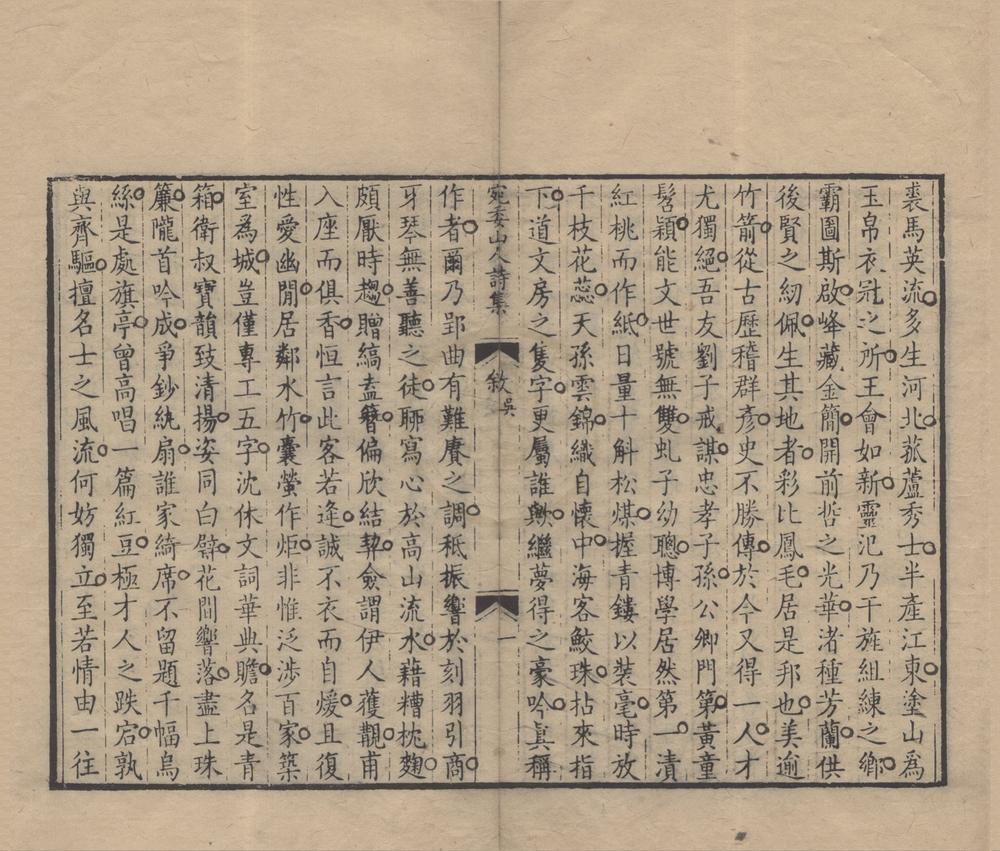 裘馬英流多生河北菰蘆秀士半產江東塗山爲
玉帛衣冠之所王會如新靈氾乃干旄組練之鄉
霸圖斯啟峰藏金簡開前哲之光華渚種芳蘭供
後賢之紉佩生其地者彩比鳳毛居是邦也美逾
竹箭從古歷稽群彥史不勝傳於今又得一人才
尤獨絕吾友劉子戒謀忠孝子孫公卿門第黃童
髫穎能文世號無雙虬子幼聰博學居然第一漬
紅桃而作紙日量十斛松煤握青鏤以裝毫時放
千枝花蕊天孫雲錦織自懷中海客鮫珠拈來指
下道文房之隻字更屬誰歟繼夢得之豪吟眞稱
宛委山人詩集
敘吳
一
作者爾乃郢曲有難賡之調秪振響於刻羽引商
牙琴無善聽之徒聊寫心於高山流水藉糟枕麴
頗厭時趨贈縞盍簪偏欣結契僉謂伊人蒦覯甫
入座而俱香恒言此客若逢誠不衣而自煖且復
性愛幽閒居鄰水竹囊螢作炬非惟泛涉百家築
室爲城豈僅專工五字沈休文詞華典贍名是青
箱衛叔寶韻致清揚姿同白璧花間響落盡上珠
簾隴首吟成爭鈔紈扇誰家綺席不留題千幅烏
絲是處旗亭曾高唱一篇紅豆極才人之跌宕孰
與齊驅擅名士之風流何妨獨立至若情由一往